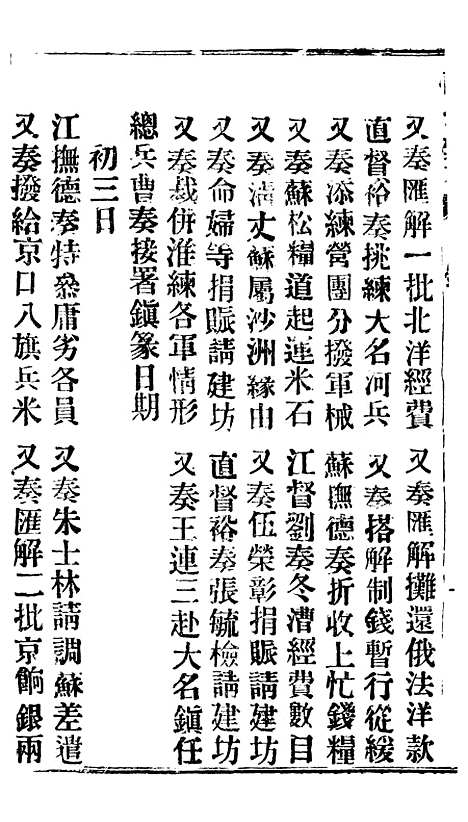 又奏匯解一批北洋經費　又奏匯解攤還俄法洋款
直督裕奏挑練大名河兵　又奏搭解制錢暫行從緩
又奏添練營團分撥軍械　蘇撫德奏折收上忙錢糧
又奏蘇松糧道起運米石　江督劉奏冬漕經費數目
又奏清丈蘇屬沙洲緣由　又奏伍榮彰捐賑請建坊
又奏命婦等捐賑請建坊　直督裕奏張毓檢請建坊
又奏裁併淮練各軍情形　又奏王連三赴大名鎮任
總兵曹奏接署鎮篆日期
初三日
江撫德奏特叅庸劣各員　又奏朱士林請調蘇差遣
又奏撥給京口八旗兵米　又奏匯解二批京餉銀兩